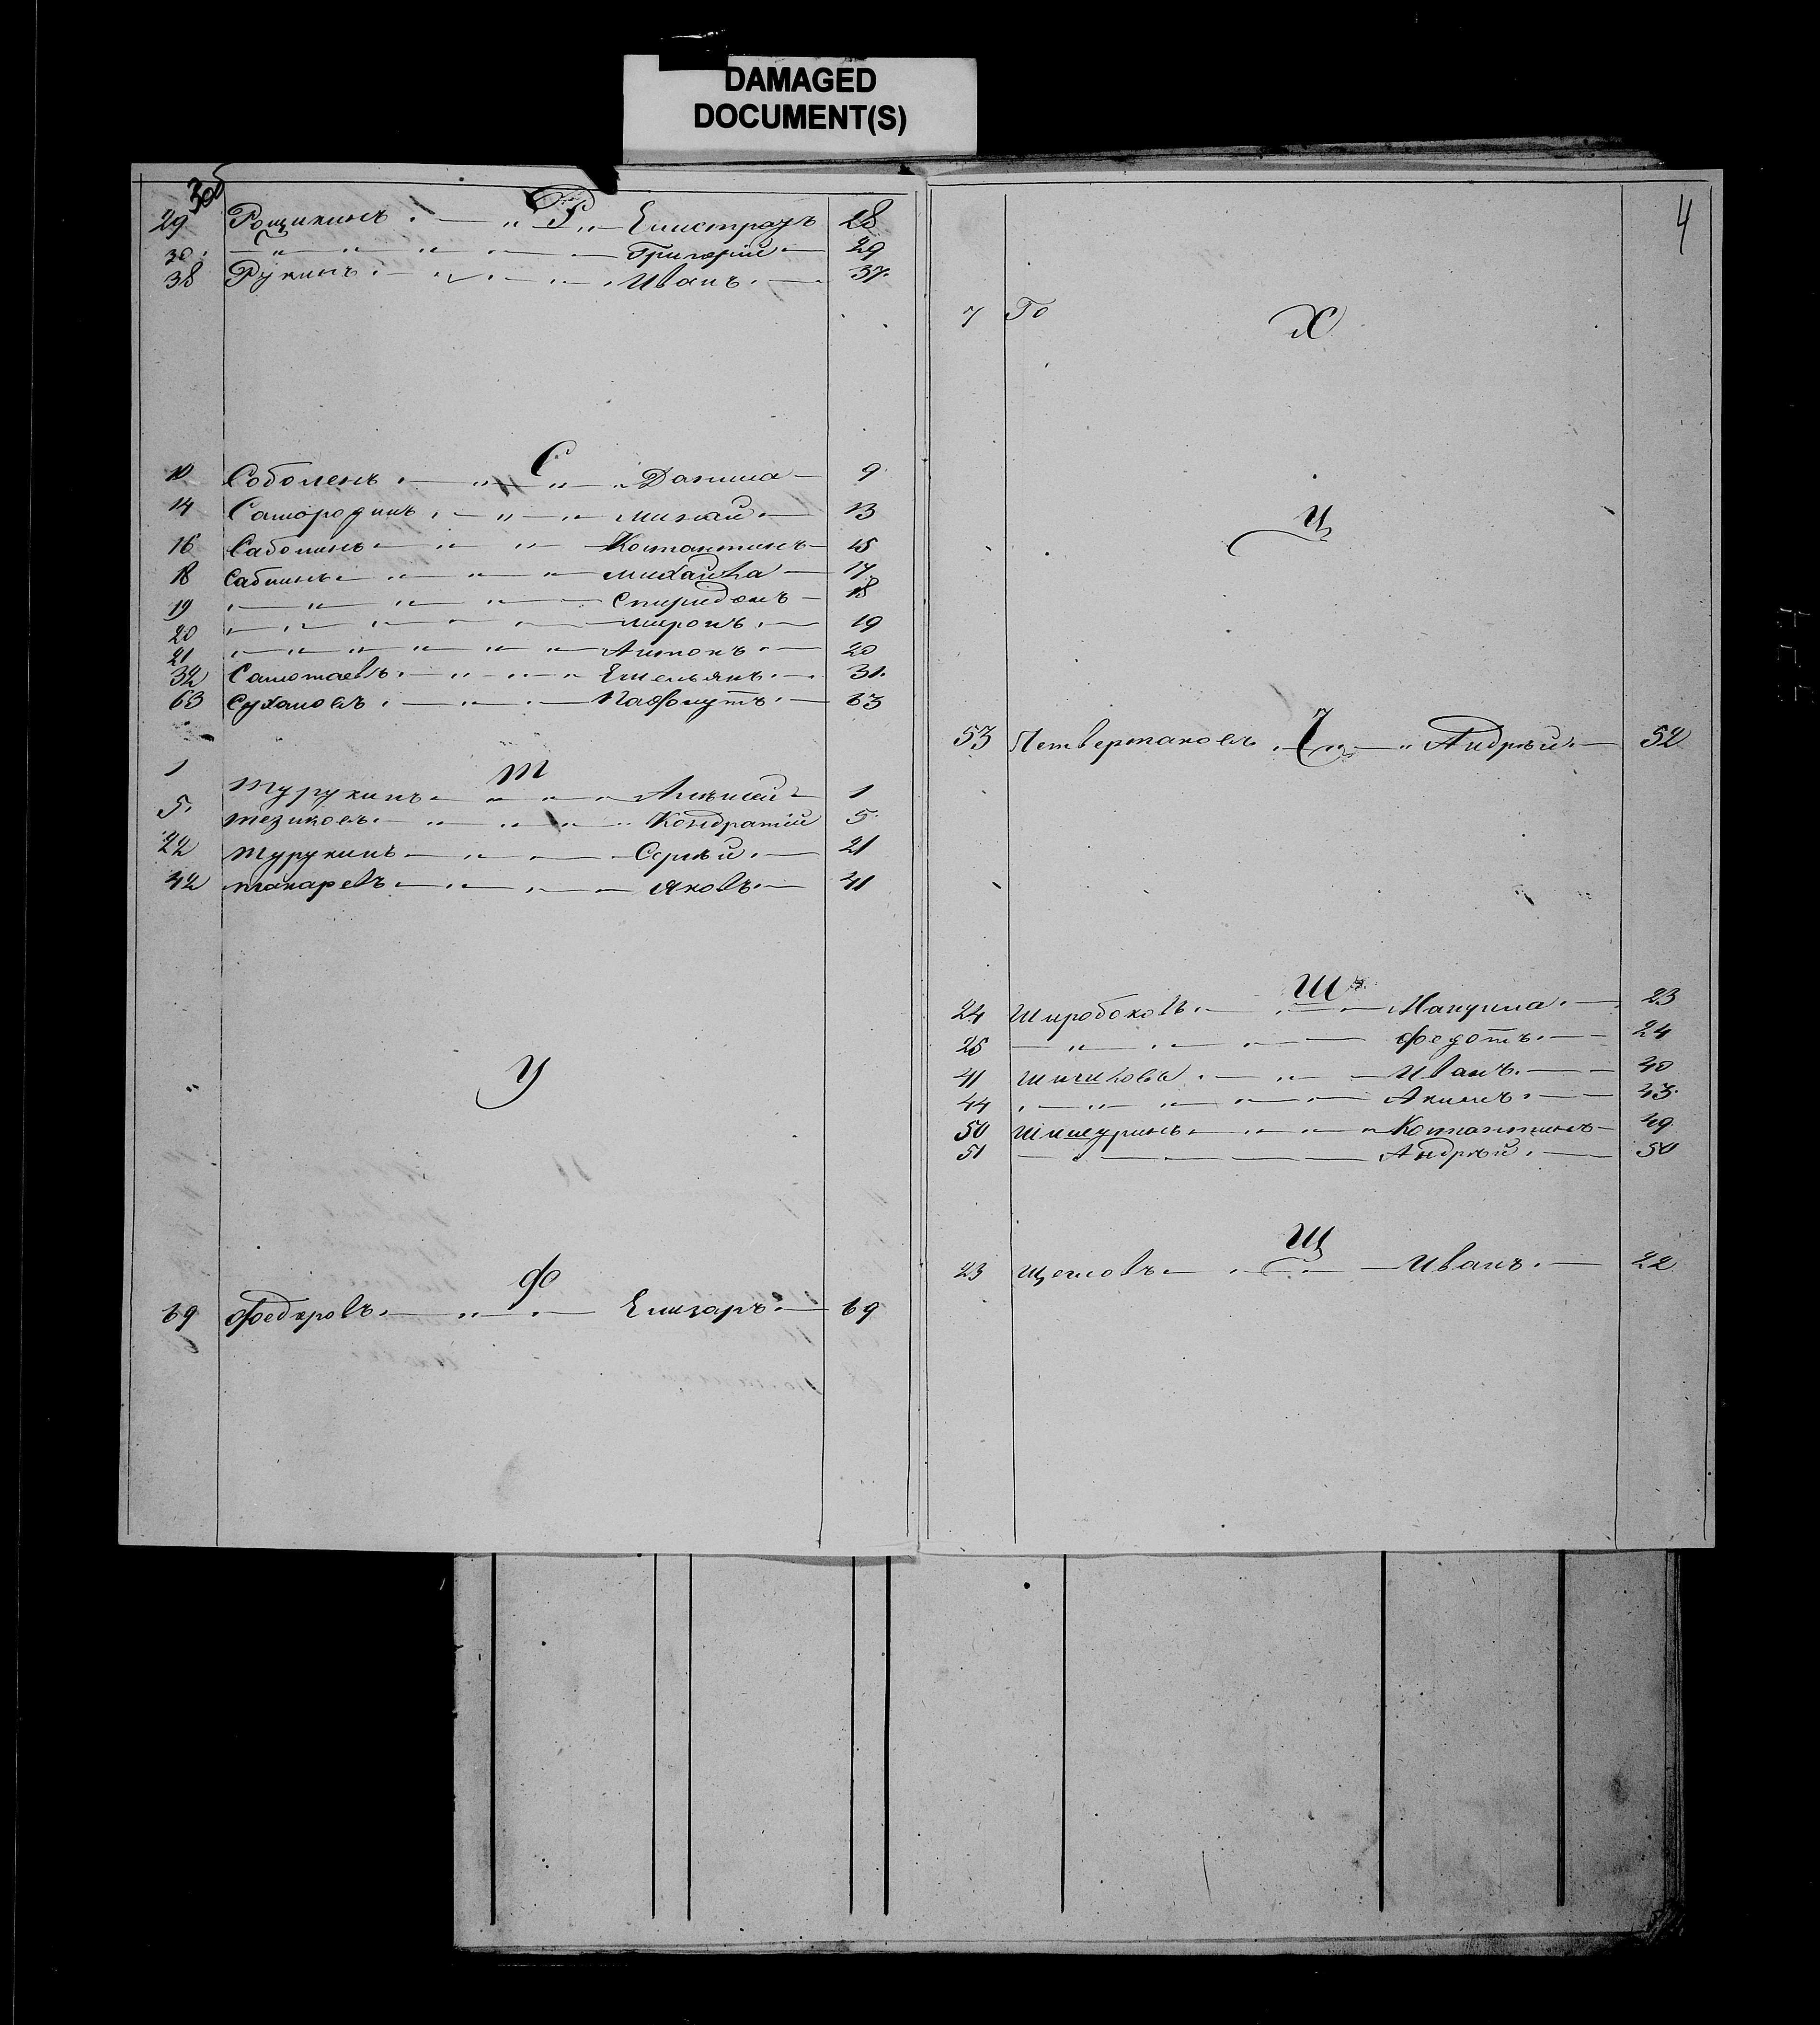 DAMAGED
DOCUMENT(S)
300
Р
29 Рощикинъ Елистратъ 28
30 " " " " Григорій 29
38 Рукинъ Иванъ 37
С
10 Соболенъ " " Данила 9
14 Самородинъ " " Михаи 13
16 Саболинъ " " Костантинъ 15
18 Сабнинъ " " " Михайла 17
19 " " " " Спиридонъ 18
20 " " " " Миронъ 19
21 " " " " " " Антонъ 20
32 Самотаевъ " " Емельянъ 31
63 Сухановъ Пафнутъ 63
Т
1 Турукинъ " " Алексей 1
5 Тезиковъ " " " Кондратій 5
22 Турукинъ " Сергѣй 21
42 Токаревъ Яковъ 41
У
Ф
69 Федоровъ " Елизаръ 69
4
7 Го
Х
Ц
Ч
53 Четвертаковъ " Андрѣй 52
Ш
24 Широбоковъ Макрима 23
25 " " " Федотъ 24
41 Шишковъ " Иванъ 40
44 " " " " Акимъ 43
50 Шишуринъ " " Костантинъ 49
51 Андрѣй 50
Щ
23 Щегловъ Иванъ 22